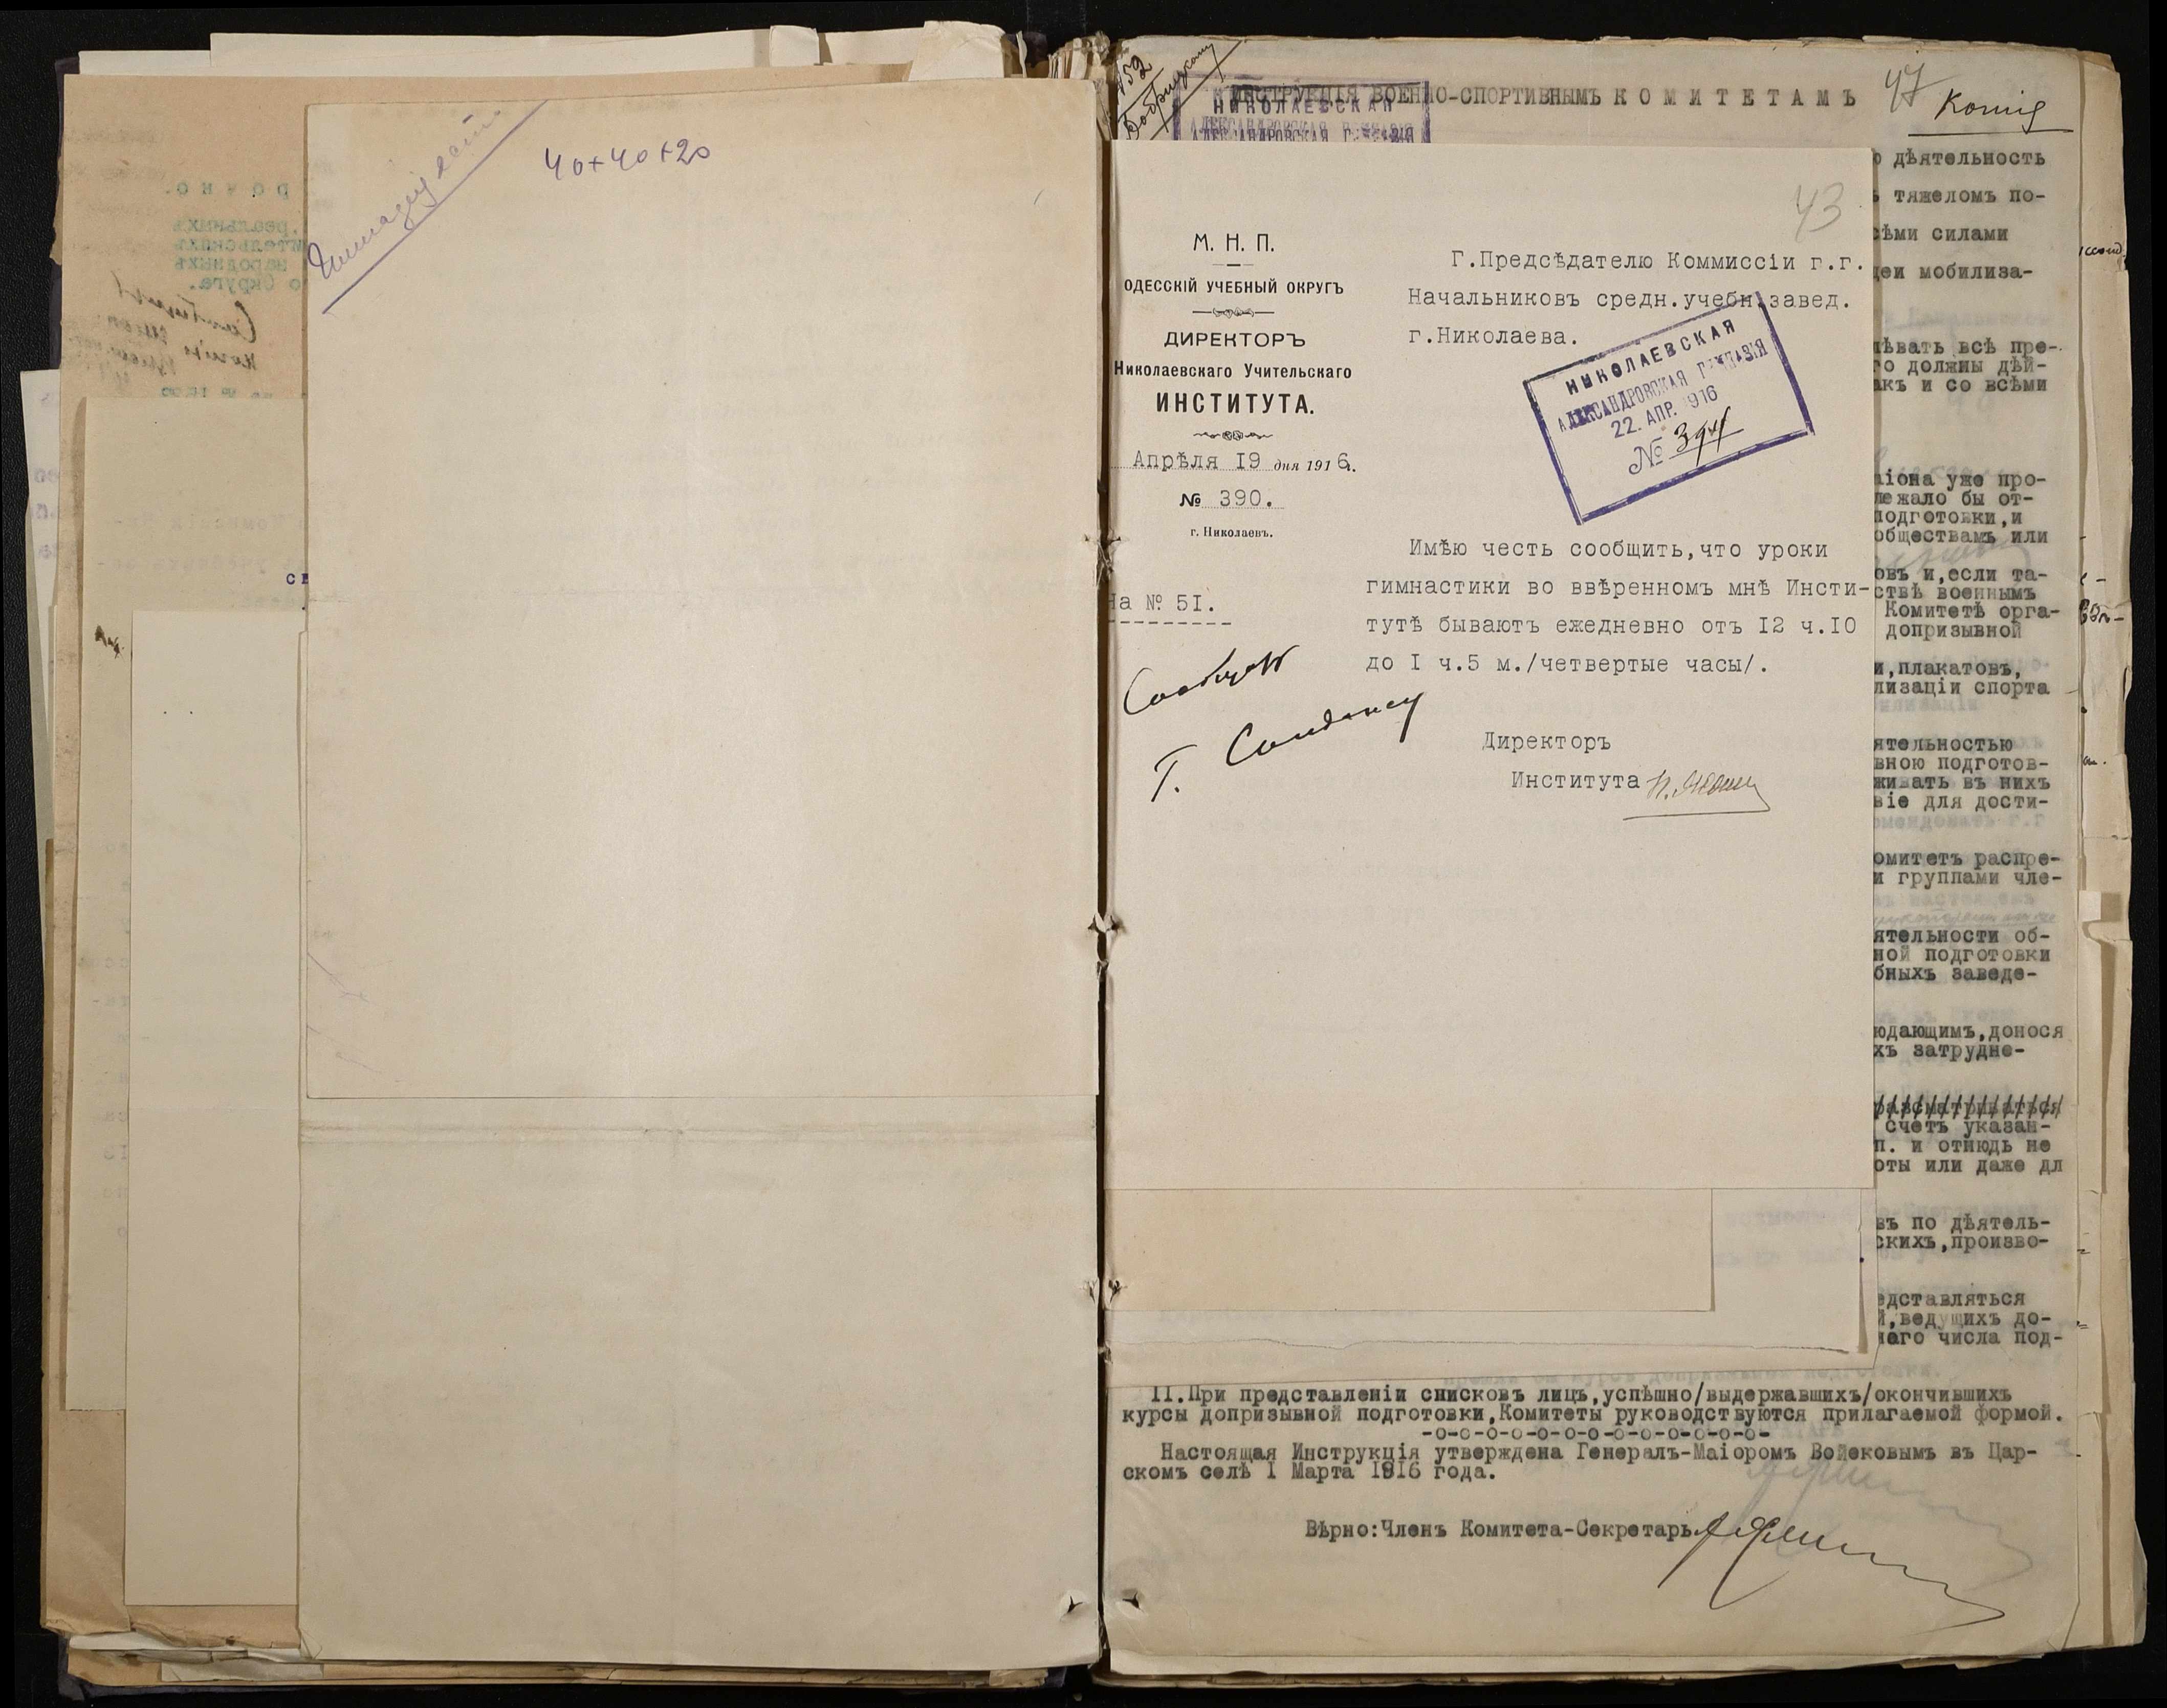 40+40+20
ИНСТРУКЦІЯ ВОЕННО-СПОРТИВНЫМЪ КОМИТЕТАМЪ
47
Копія
НИКОЛАЕВСКАЯ
АЛЕКСАНДРОВСКАЯ ГИМНАЗІЯ
43
М. Н. П.
ОДЕССКІЙ УЧЕБНЫЙ ОКРУГЪ
ДИРЕКТОРЪ
Николаевскаго Учительскаго
ИНСТИТУТА.
Апрѣля 19 дня 1916 г.
№ 390.
г. Николаевъ.
На № 51.
Г.Предсѣдателю Коммиссіи г.г.
Начальниковъ средн.учебн.завед.
г.Николаева.
НИКОЛАЕВСКАЯ
АЛЕКСАНДРОВСКАЯ ГИМНАЗІЯ
22. АПР. 1916
№ 394
Имѣю честь сообщить,что уроки
гимнастики во ввѣренномъ мнѣ Инсти-
тутѣ бываютъ ежедневно отъ 12 ч.10
до 1 ч.5 м./четвертые часы/.
Директоръ
Института
Г.
дѣятельность
тяжеломъ по-
сѣми силами
деи мобилиза-
ѣвать всѣ пре-
го должны дѣй-
акъ и со всѣми
аіона уже про-
лежало бы от-
подготовки,и
обществамъ или
овъ и,если та-
ствѣ военнымъ
Комитетѣ орга-
допризывной
и,плакатовъ,
лизаціи спорта
ятельностью
вною подготов-
живать въ нихъ
віе для дости-
омитетъ распре-
и группами чле-
ятельности об-
ной подготовки
бныхъ заведе-
юдающимъ,донося
хъ затрудне-
разсматриваться
счетъ указан-
п. и отнюдь не
оты или даже дл
въ по дѣятель-
скихъ,произво-
едставляться
й,ведущихъ до-
наго числа под-
11.При представленіи списковъ лицъ,успѣшно/выдержавшихъ/окончившихъ
курсы допризывной подготовки,Комитеты руководствуются прилагаемой формой.
-о-о-о-о-о-о-о-о-о-о-о-о-о-
Настоящая Инструкція утверждена Генералъ-Маіоромъ Войековымъ въ Цар-
скомъ селѣ 1 Марта 1916 года.
Вѣрно:Членъ Комитета-Секретарь